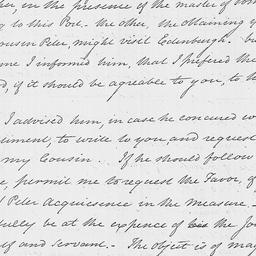 in the presence of the master of
to this Port. - the other, the obtaining
Cousin Peter, might visit Edinburgh.
me I informed him, that I prefered the
if it should be agreeable to you, to
I advised him, in case he concured
timent, to write to you, and request
my Cousin. If he should follow
permit me to request the Favor, of
Peter Acquiescence in the measure. -
fully be at the expence of his
self and servant. - The object is of